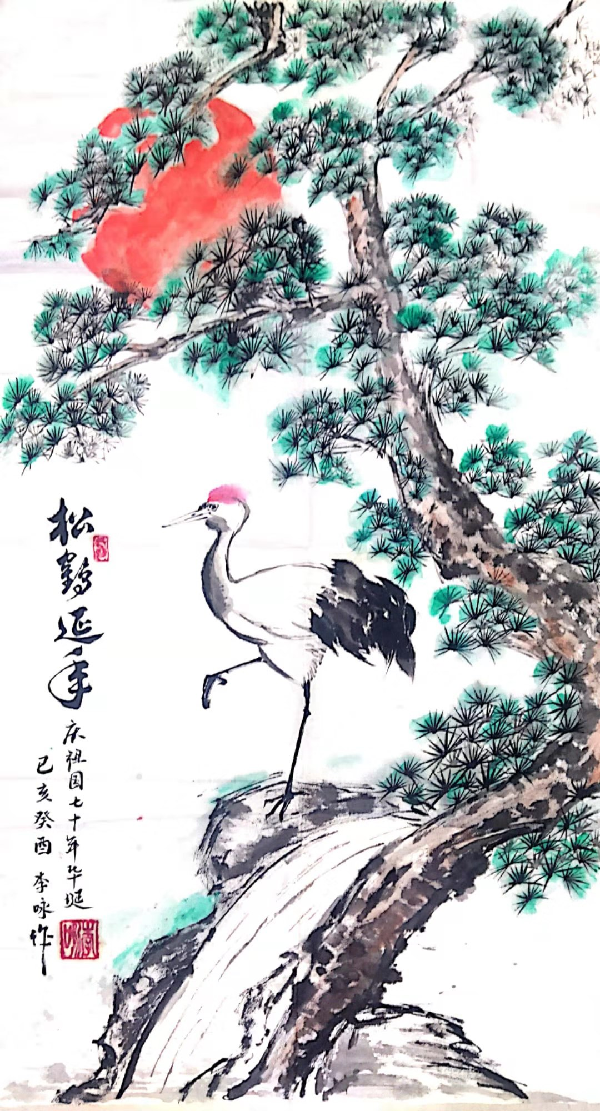 松鹤延年
庆祖国七十年华诞
己亥癸酉 李咏作